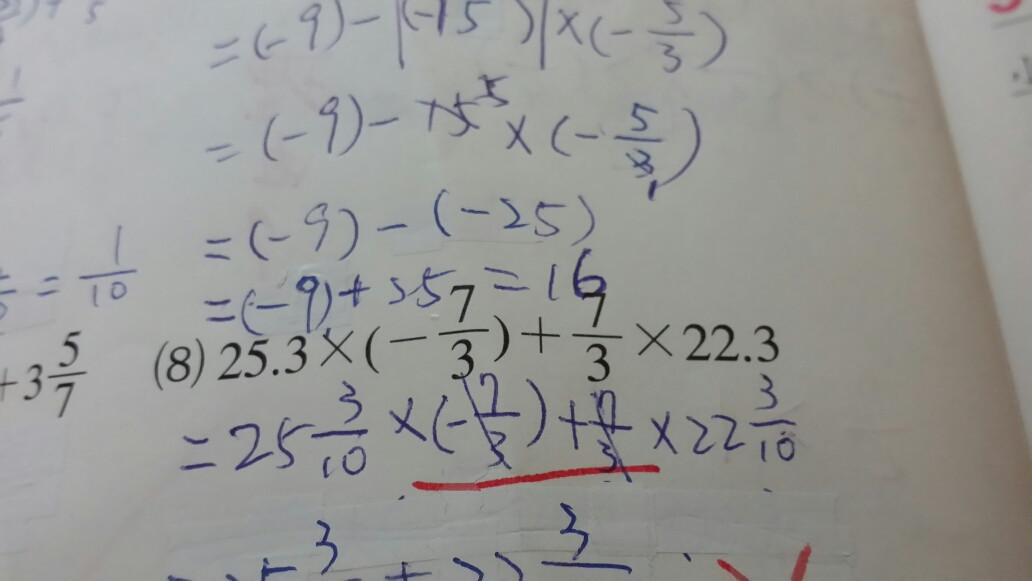 = (-9) - |(-15)| × (- 5/3)
= (-9) - 15 5 × (- 5/3)
= (-9) - (-25)
= 1/10
= (-9) + 25 = 16
+3 5/7
(8) 25.3 × (- 7/3) + 7/3 × 22.3
= 25 3/10 × (- 7/3) + 7/3 × 22 3/10